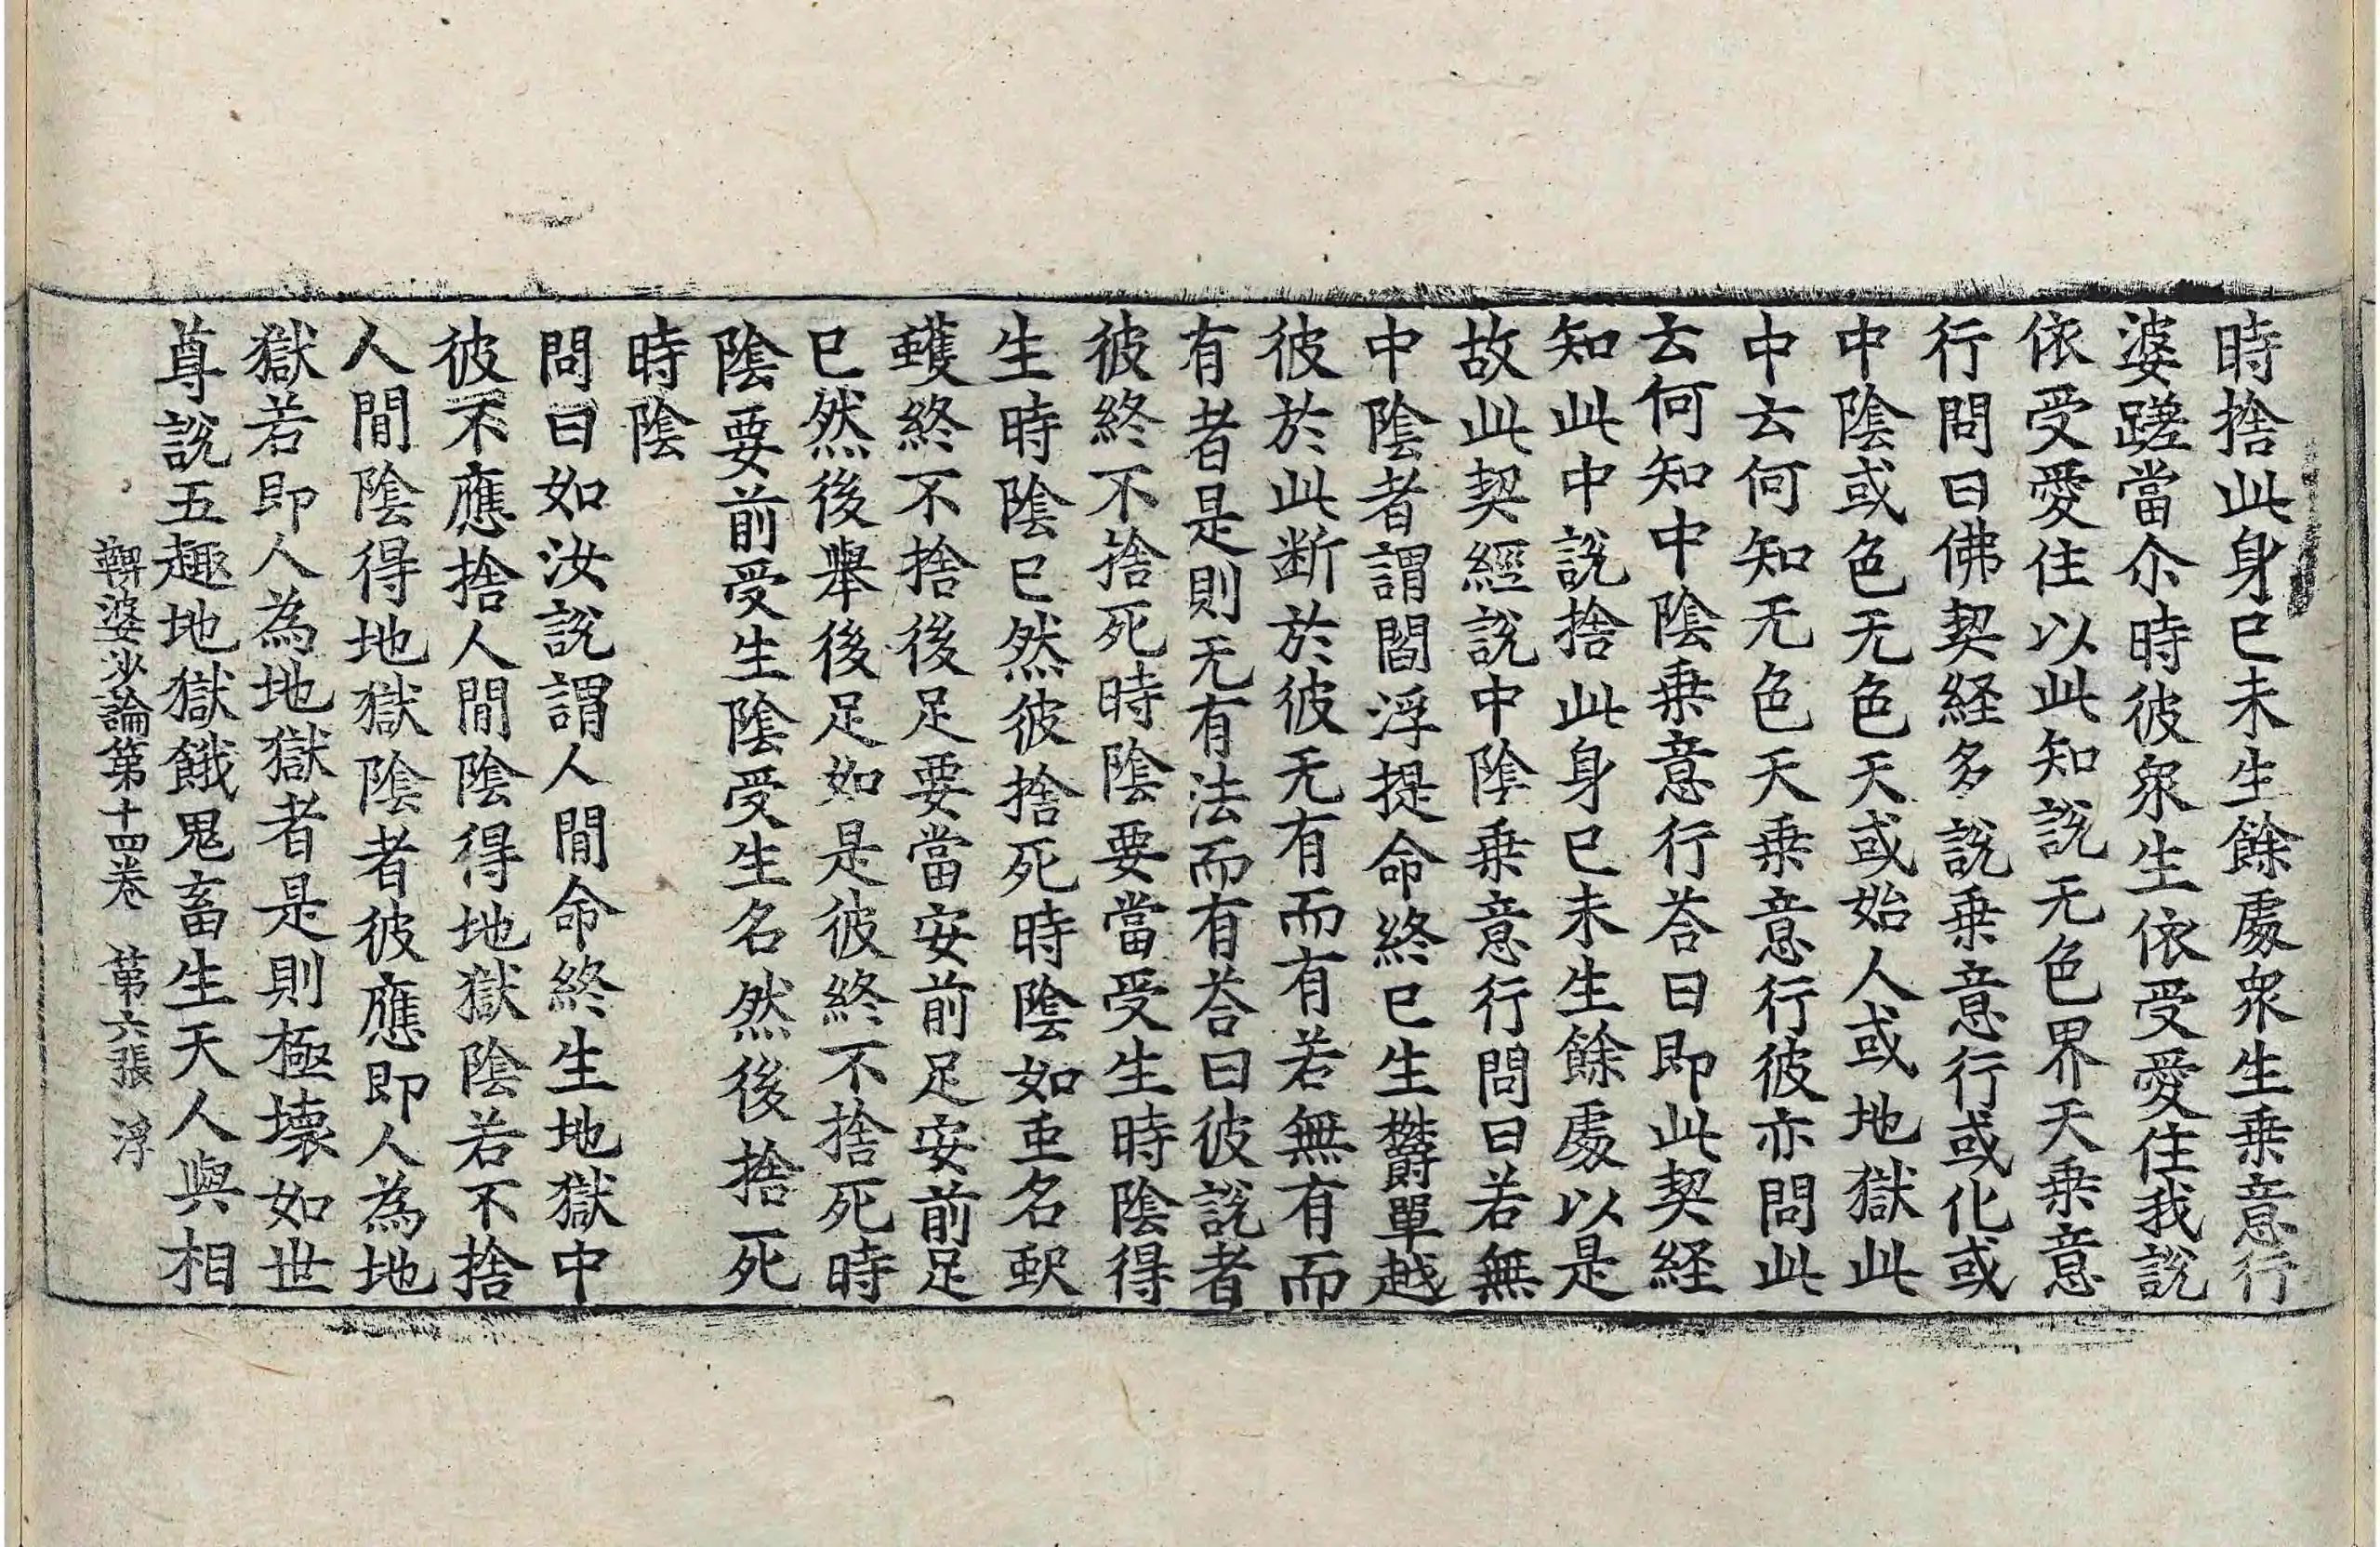 時捨此身已未生餘處衆生乗意行
婆蹉當尒時彼衆生依受愛住我說
依受愛住以此知說无色界天乗意
行問曰佛契経多說乗意行或化或
中陰或色无色天或始人或地獄此
中云何知无色天乗意行彼亦問此
云何知中陰乗意行荅曰即此契経
知此中說捨此身已未生餘處以是
故此契經說中陰乗意行問曰若無
中陰者謂閻浮提命終已生欝單越
彼於此断於彼无有而有若無有而
有者是則无有法而有荅曰彼說者
彼終不捨死時陰要當受生時陰得
生時陰已然彼捨死時陰如𧈧名𧈧
蠖終不捨後足要當安前足安前足
已然後舉後足如是彼終不捨死時
陰要前受生陰受生名然後捨死
時陰
問曰如汝說謂人間命終生地獄中
彼不應捨人間陰得地獄陰若不捨
人間陰得地獄陰者彼應即人為地
獄若即人為地獄者是則極壊如世
尊說五趣地獄餓鬼畜生天人與相
鞞婆沙論第十四卷 第六張 浮